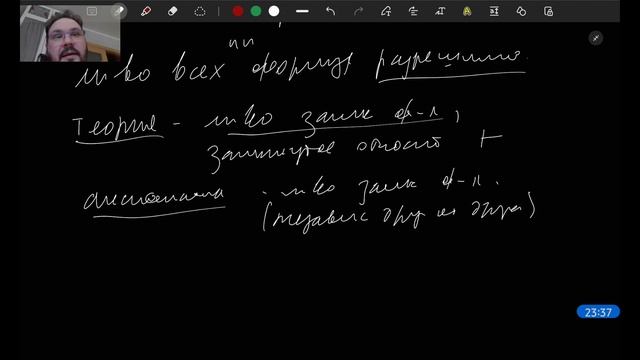 пп
мн-во всех формул разрешимо.
Теория - мн-во замк ф-л,
замкнутое относит ⊢
мн-во замк ф-л.
(независ друг от друга)
23:37